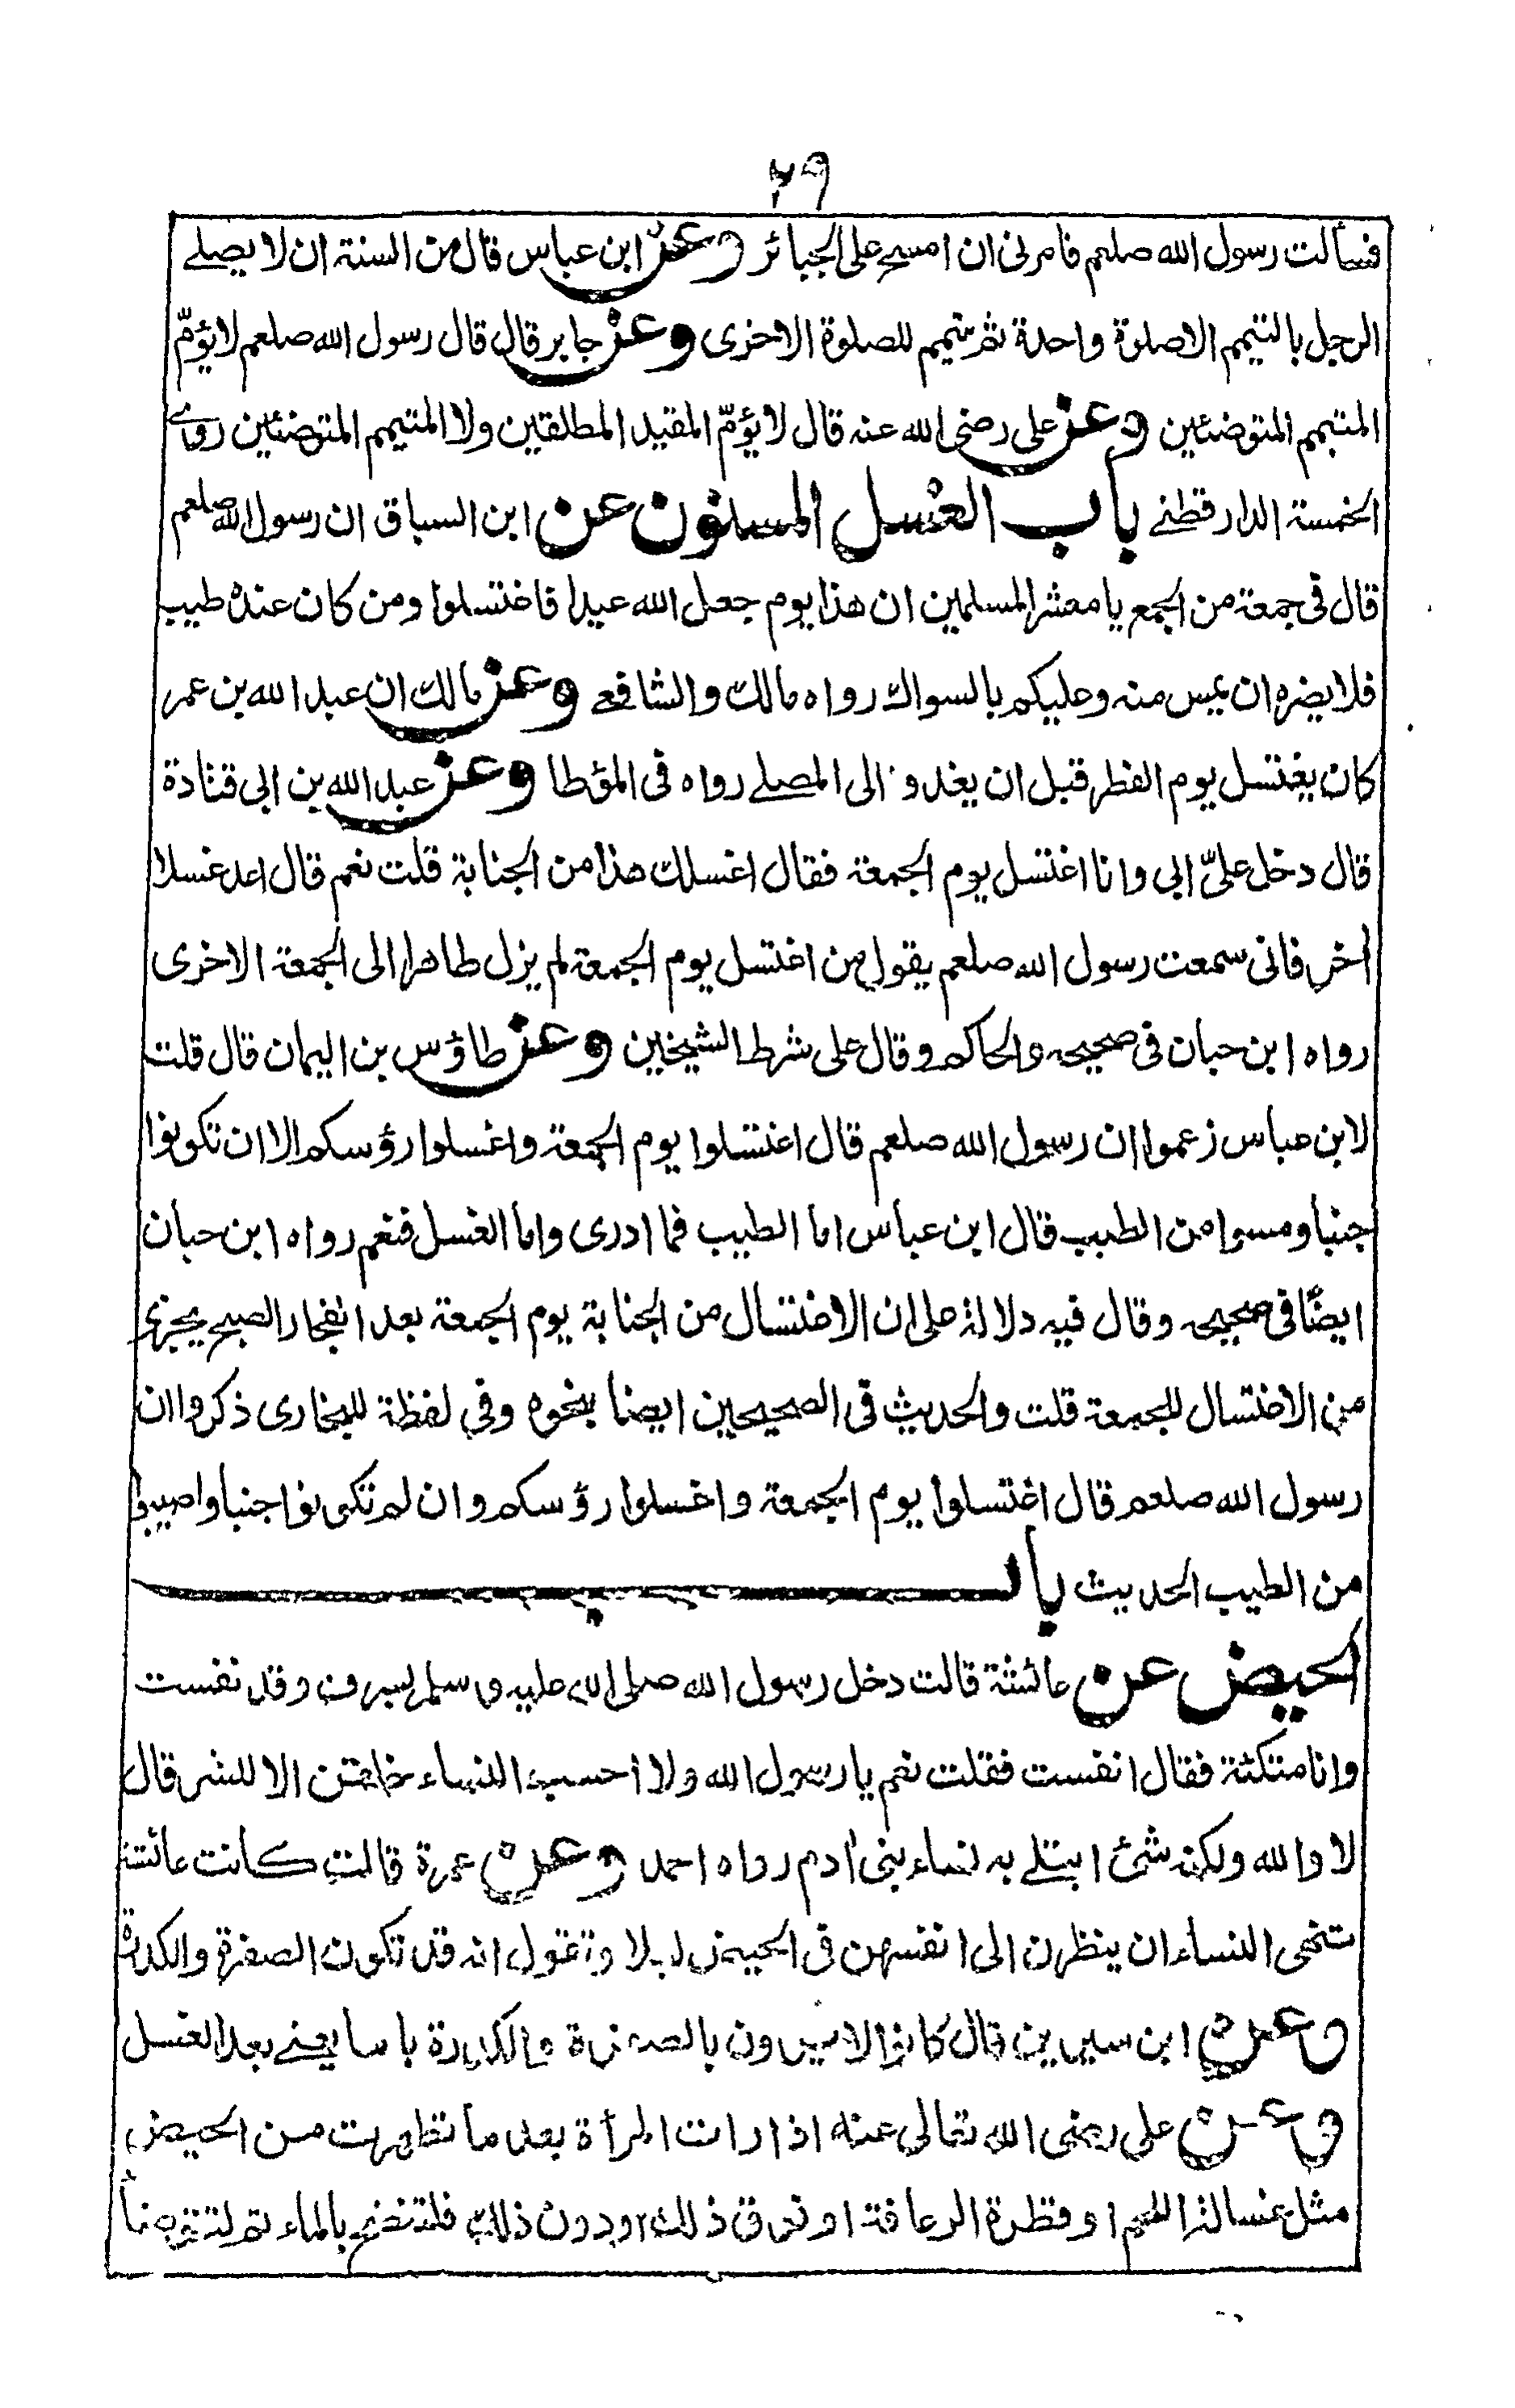 ٢٩
فسألت رسول الله صلعم فامرنى ان امسح على الجبائر وعن ابن عباس قال من السنة ان لا يصلے
الرجل بالتيمم الاصلوة واحدة ثم يتيمم للصلوة الاخرى وعن جابر قال قال رسول الله صلعم لا يؤمّ
المتيمم المتوضئين وعن على رضى الله عنه قال لا يؤمّ المقيد المطلقين ولا المتيمم المتوضئين روى
الخمسة الدارقطنے باب الغسل المسنون عن ابن السباق ان رسول الله صلعم
قال فى جمعة من الجمع يا معشر المسلمين ان هذا يوم جعل الله عيدا فاغتسلوا ومن كان عنده طيب
فلا يضره ان يمس منه وعليكم بالسواك رواه مالك والشافعے وعن مالك ان عبد الله بن عمر
كان يغتسل يوم الفطر قبل ان يغدو الى المصلے رواه فى المؤطا وعن عبد الله بن ابى قتادة
قال دخل علىّ ابى وانا اغتسل يوم الجمعة فقال اغسلك هذا من الجنابة قلت نعم قال اعد غسلا
اخر فانى سمعت رسول الله صلعم يقول من اغتسل يوم الجمعة لم يزل طاهرا الى الجمعة الاخرى
رواه ابن حبان فى صحيحه والحاكم وقال على شرط الشيخين وعن طاؤس بن اليمان قال قلت
لابن عباس زعموا ان رسول الله صلعم قال اغتسلوا يوم الجمعة واغسلوا رؤسكم الا ان تكونوا
جنبا ومسوا من الطيب قال ابن عباس اما الطيب فما ادرى واما الغسل فنعم رواه ابن حبان
ايضًا فى صحيحه وقال فيه دلالة على ان الاغتسال من الجنابة يوم الجمعة بعد انفجار الصبح يجزى
من الاغتسال للجمعة قلت والحديث فى الصحيحين ايضا بنحوه وفى لفظة للبخارى ذكروا ان
رسول الله صلعم قال اغتسلوا يوم الجمعة واغسلوا رؤسكم وان لم تكونوا جنبا واصيبوا
من الطيب الحديث باب
الحيض عن عائشة قالت دخل رسول الله صلى الله عليه وسلم بسرف وقد نفست
وانا متكئة فقال انفست فقلت نعم يا رسول الله ولا احسب النساء خلقن الا للشر قال
لا والله ولكنه شئ ابتلے به نساء بنى ادم رواه احمد وعن عمرة قالت كانت عائشة
تنهى النساء ان ينظرن الى انفسهن فى الحيض ليلا وتقول انه قد تكون الصفرة والكدرة
وعن ابن سيرين قال كانوا لا يرون بالصفرة والكدرة باسا يعنے بعد الغسل
وعن على رضى الله تعالى عنه اذا رات المرأة بعد ما تطهرت من الحيض
مثل غسالة اللحم او قطرة الرعافة او فوق ذلك او دون ذلك فلتنضح بالماء ثم لتتوضأ